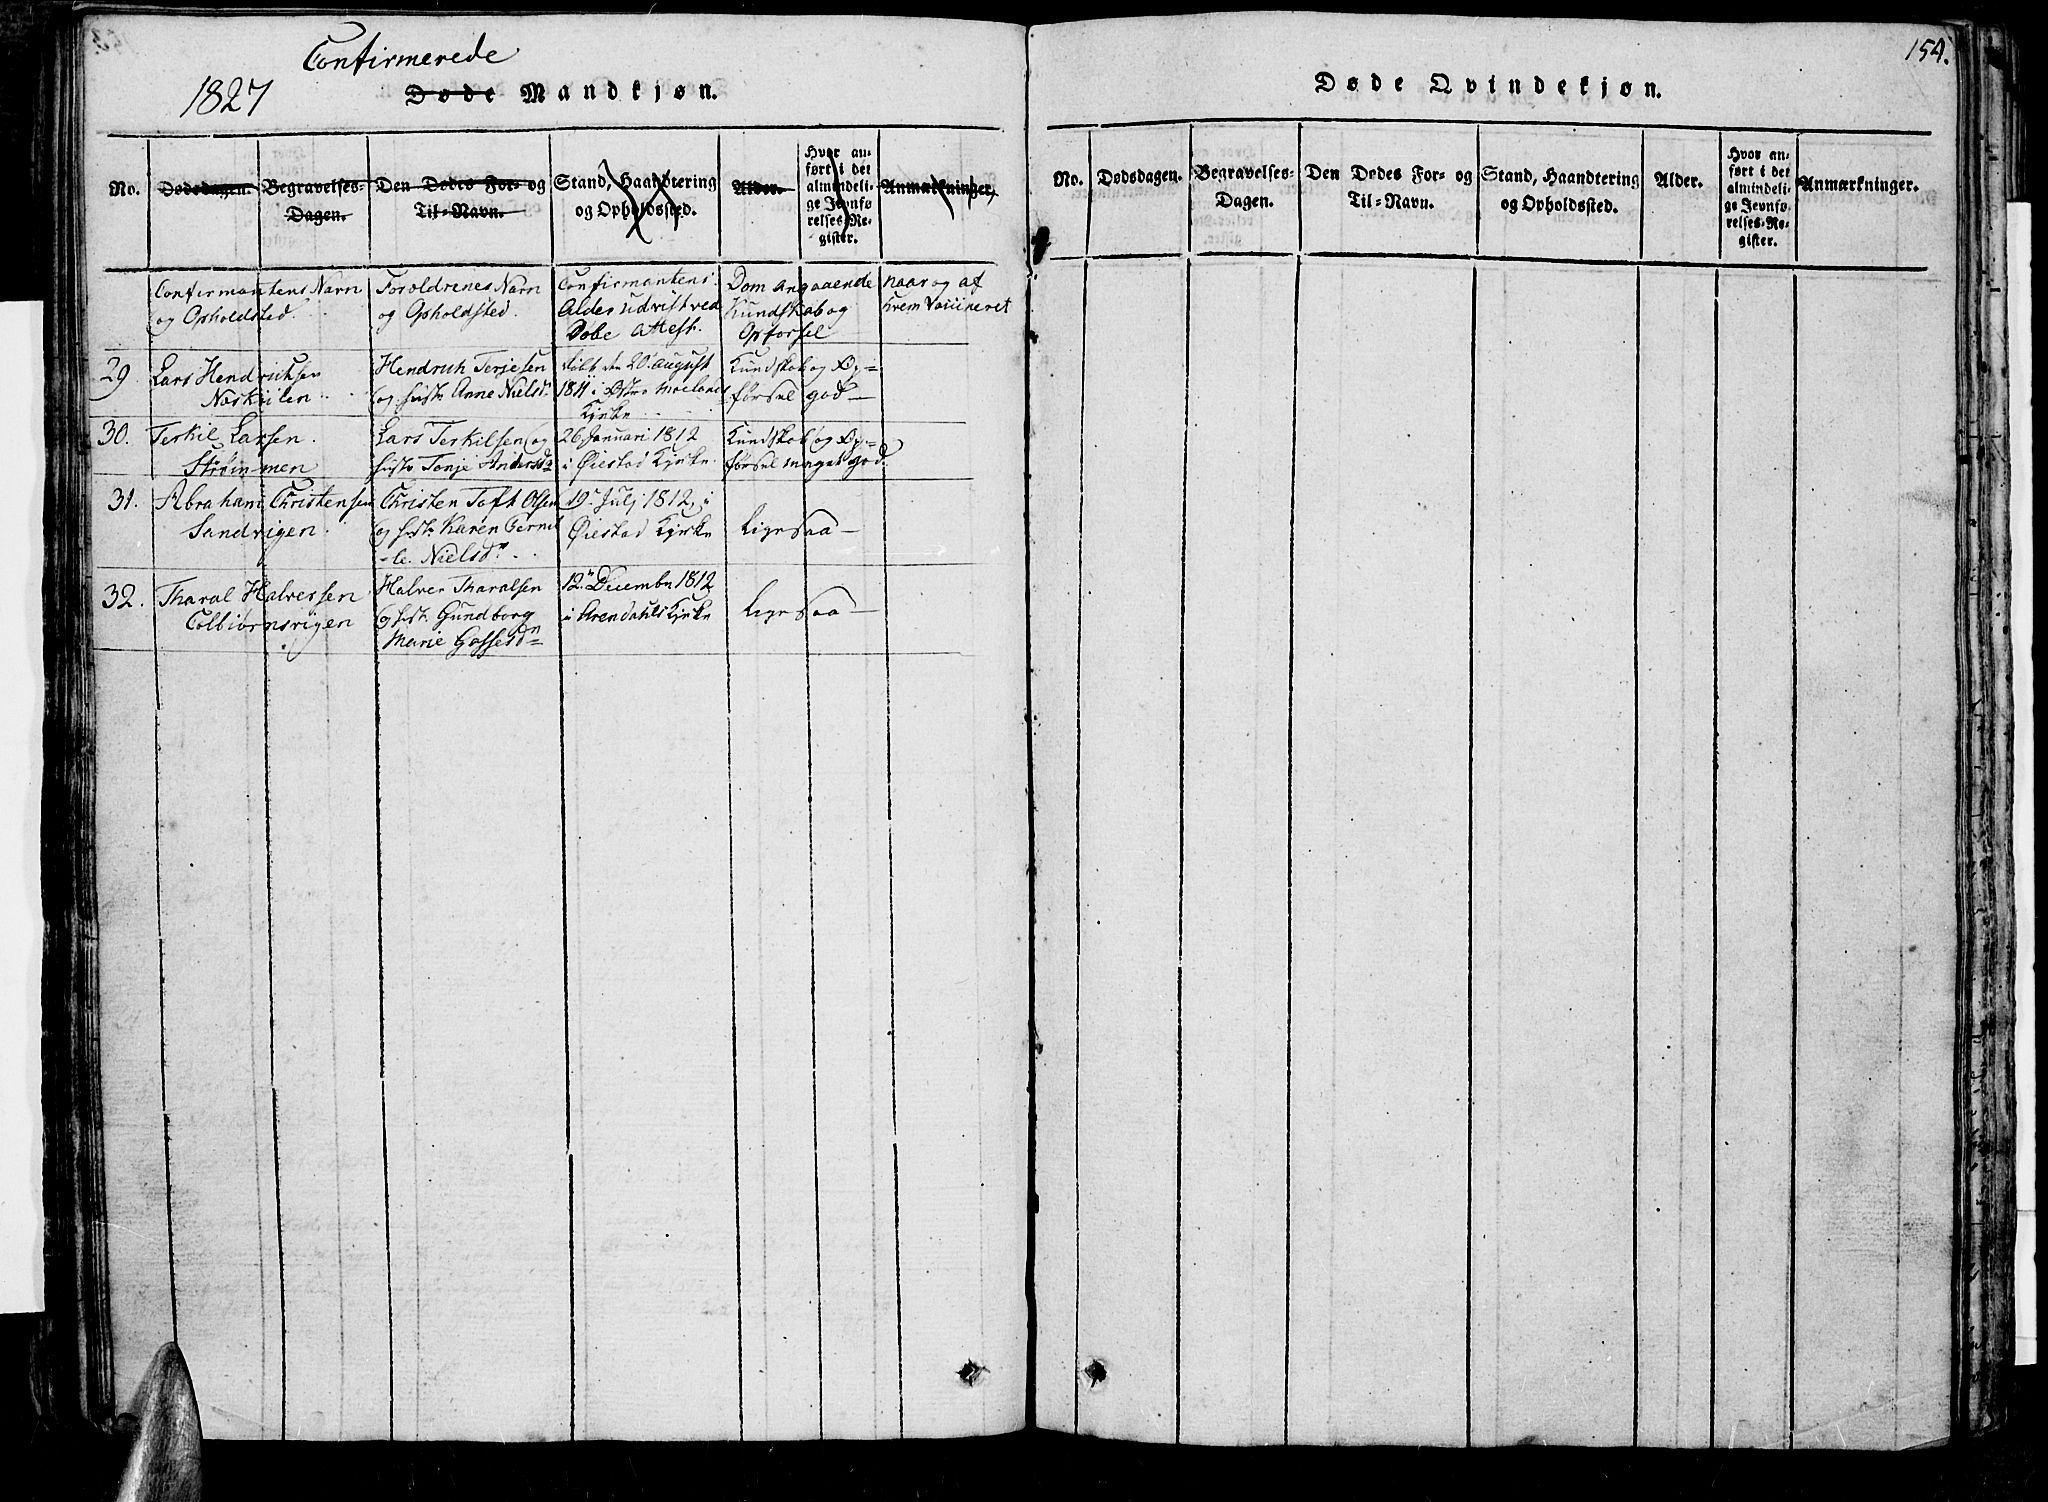 Confirmerede
1827 Døde Mandkjøn.
No. Dødsdagen. Begravelses-Dagen. Den Dødes For- og Til-Navn. Stand, Haandtering og Opholdssted. Alder. Hvor anført i det almindelige Jevnførelses-Register. Anmærkninger.
Confirmantens Navn og Opholdsted. Foroldrenes Navn og Opholdsted. Confirmantens Alder udvist ved Dobe Attest. Dom angaaende Kundskab og Opforsel naar og af hvem Vaccineret
29 Lars Hendrichsen Noskilen. Hendrich Terjesen og hust: Anne Nielsd. døbt den 20. august 1811 i Østre Moelands Kjirke Kundskab og Opførsel god —
30. Terkil Larsen. Strømmen Lars Terkilsen og hust: Tonje Andersd. 26 Januari 1812 i Øiestad Kjirke. Kundskab og Opførsel meget god.
31. Abraham Christensen Sandvigen. Christen Toft Olsen og hust: Karen Pernille Nielsd. 19 Julj 1812, i Øiestad Kjirke Ligesaa —
32. Tharal Halversen Colbiørnsvigen Halver Tharalsen og hust: Gundborg Marie Gossesdn 12. Decembr 1812 i Arendahls Kjirke Ligesaa —
154.
Døde Qvindekjøn.
No. Dødsdagen. Begravelses-Dagen. Den Dødes For- og Til-Navn. Stand, Haandtering og Opholdssted. Alder. Hvor anført i det almindelige Jevnførelses-Register. Anmærkninger.